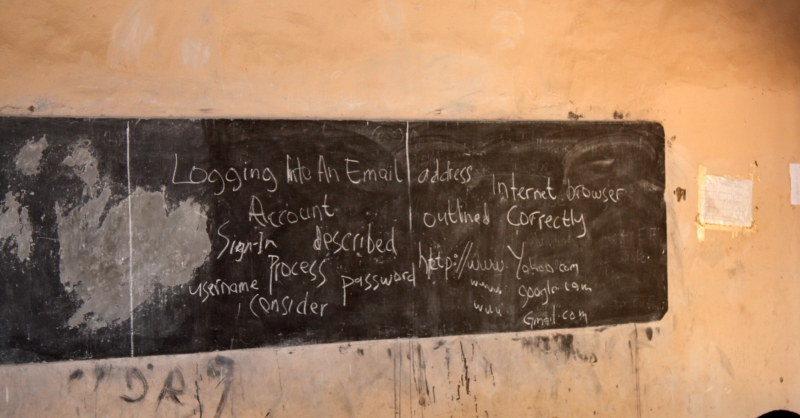 Logging Into An Email
Account
Sign-In described
Process
username password
consider
address
Internet browser
outlined Correctly
http://www Yahoo.com
www google com
www Gmail.com